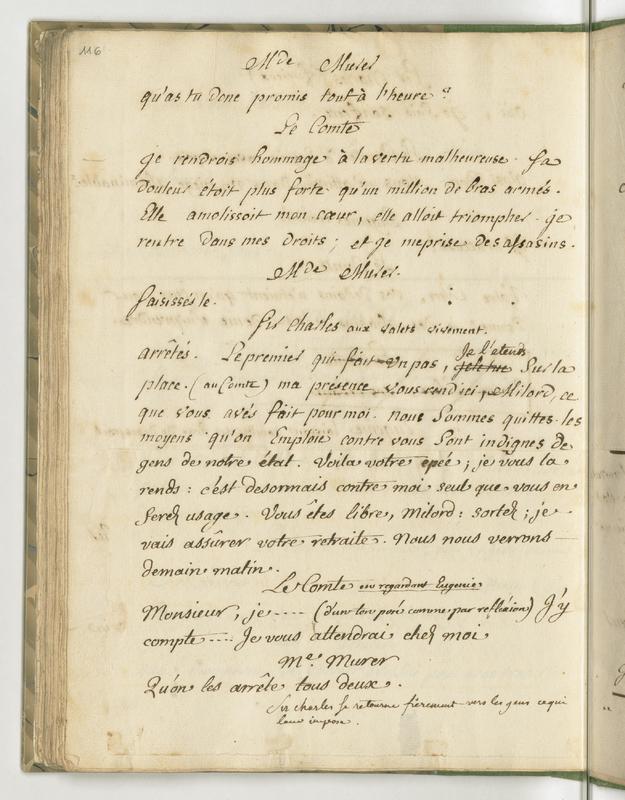 116
Mde Murer
qu'as tu donc promis tout à l'heure?
Le Comte
je rendrois hommage à la vertu malheureuse. Sa
douleur étoit plus forte qu'un million de bras armés.
Elle amolissoit mon cœur, elle alloit triompher. je
rentre dans mes droits; et je meprise des assasins.
Mde Murer.
saisissés le.
Sir Charles aux valets vivement.
arrêtés. Le premier qui fait un pas, je le tue Je l'etends sur la
place. (au Comte) ma présence vous rend ici, Milord, ce
que vous avés fait pour moi. nous sommes quittes. les
moyens qu'on Emploie contre vous sont indignes de
gens de notre état. Voila votre epée; je vous la
rends: c'est desormais contre moi seul que vous en
ferez usage. Vous êtes libre, Milord: sortez; je
vais assûrer votre retraite. Nous nous verrons
demain matin.
Le Comte en regardant Eugenie
Monsieur, je .... (d'un ton posé comme par refléxion) J'y
compte .... Je vous attendrai chez moi
Me. Murer
Qu'on les arrête tous deux.
Sir Charles se retourne fièrement vers les gens ce qui
leur impose.